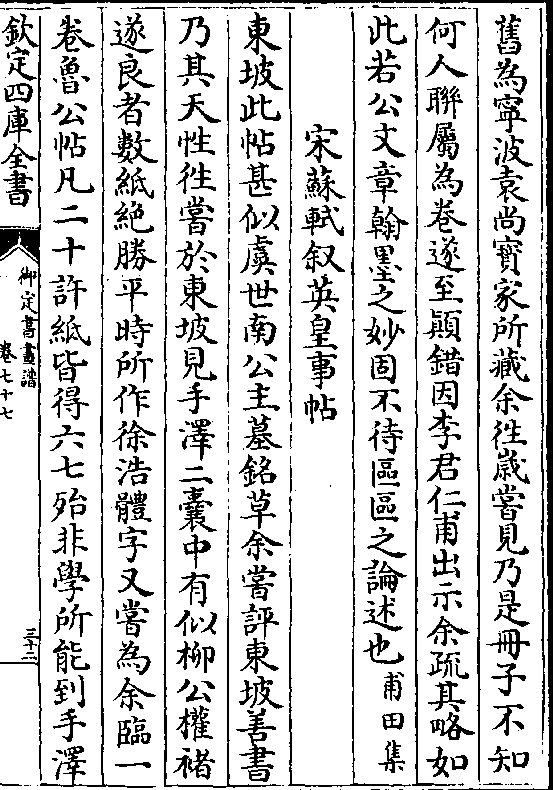 舊為寧波袁尚寳家所藏余徃歳嘗見乃是冊子不知
何人聯屬為卷遂至顚錯因李君仁甫出示余疏其略如
此若公文章翰墨之妙固不待區區之論述也甫田集
宋蘇軾叙英皇事帖
東坡此帖甚似虞世南公主墓銘草余嘗評東坡善書
乃其天性徃嘗於東坡見手澤二囊中有似柳公權褚
遂良者數紙絶勝平時所作徐浩體字又嘗為余臨一
卷魯公帖凡二十許紙皆得六七殆非學所能到手澤
欽定四庫全書
御定書畫譜
卷七十七
三十二